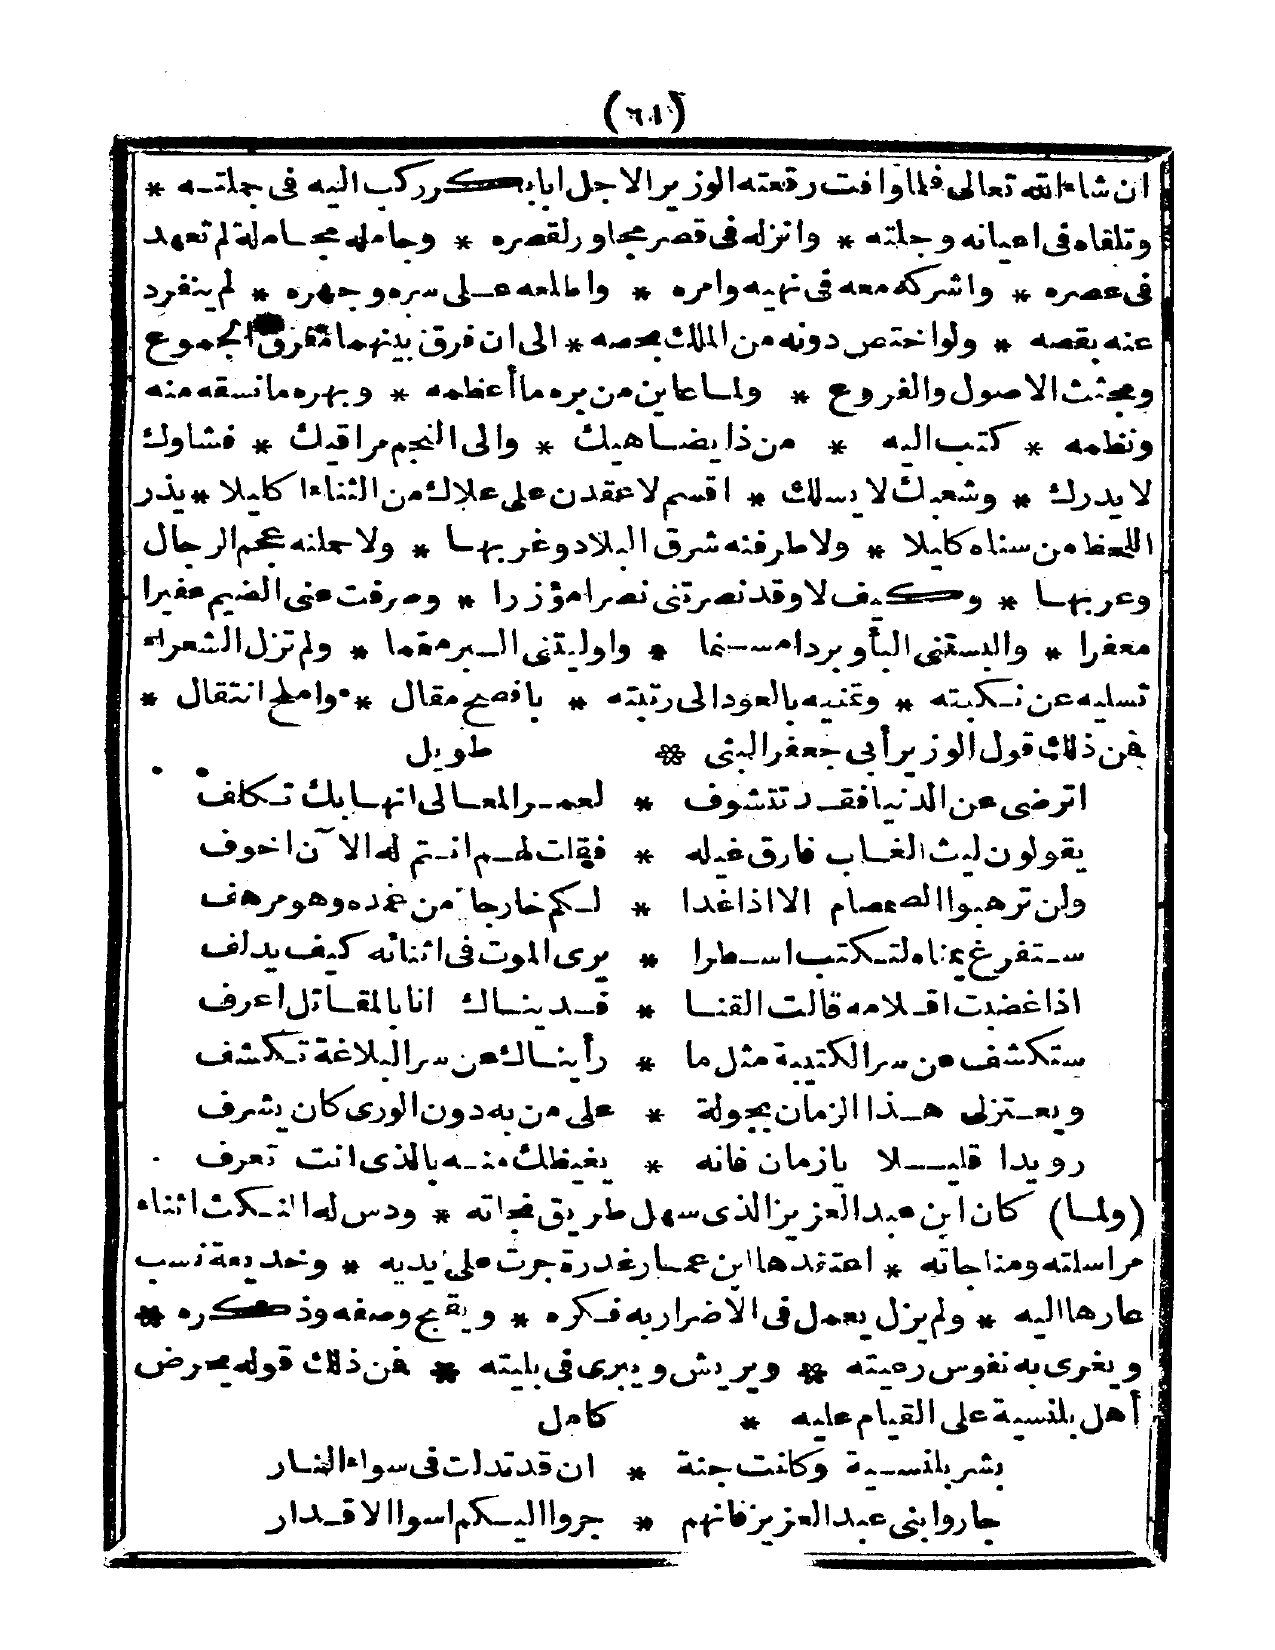 (٦١)
ان شاء الله تعالى فلما وافت رقعته الوزير الاجل ابا بكر ركب اليه فى جلته *
وتلقاه فى اعيانه وجلته * وانزله فى قصر مجاور لقصره * وجامله مجاملة لم تعهد
فى عصره * واشركه معه فى نهيه وامره * واطلعه على سره وجهره * لم ينفرد
عنه بقصه * ولو اختص دونه من الملك بحصه * الى ان فرق بينهما مفرق المجموع
ومجتث الاصول والفروع * ولما عاين من بره ما أعظمه * وبهره ما نسقه منه
ونظمه * كتب اليه * من ذا يضاهيك * والى النجم مراقيك * فشاوك
لا يدرك * وشعبك لا يسلك * اقسم لاعقدن على علاك من الثناء اكليلا * يذر
اللحظ من سناه كليلا * ولاطرفنه شرق البلاد وغربها * ولاحملنه عجم الرجال
وعربها * وكيف لا وقد نصرتنى نصرا مؤزرا * وصرفت عنى الضيم عفيرا
معفرا * والبستنى البأو بردا مسنما * واوليتنى البر مفعما * ولم تزل الشعراء
تسليه عن نكبته * وتمنيه بالعود الى رتبته * بافصح مقال * واملح انتقال *
فمن ذلك قول الوزير أبى جعفر البنى * طويل
اترضى عن الدنيا فقد تتشوف * لعمر المعالى انها بك تكلف
يقولون ليث الغاب فارق غيله * فقلت لهم انتم له الآن اخوف
ولن ترهبوا الصمصام الا اذا غدا * لكم خارجا من غمده وهو مرهف
ستفرغ يمناه لتكتب اسطرا * يرى الموت فى اثنائه كيف يدلف
اذا غضبت اقلامه قالت القنا * فديناك انا بالمقاتل اعرف
ستكشف عن سر الكتيبة مثل ما * رأيناك عن سر البلاغة تكشف
ويعتزلى هذا الزمان بجولة * على من به دون الورى كان يشرف
رويدا قليلا يا زمان فانه * يغيظك منه بالذى انت تعرف
(ولما) كان ابن عبد العزيز الذى سهل طريق نجاته * ودس له النكث اثناء
مراسلته ومناجاته * اعتقدها ابن عمار غدرة جرت على يديه * وخديعة نسب
عارها اليه * ولم يزل يعمل فى الاضرار به فكره * ويقبح وصفه وذكره *
ويغرى به نفوس رعيته * ويريش ويبرى فى بليته * فمن ذلك قوله يحرض
أهل بلنسية على القيام عليه * كامل
بشر بلنسية وكانت جنة * ان قد تدلت فى سواء النار
جاروا بنى عبد العزيز فانهم * جروا اليكم اسوا الاقدار